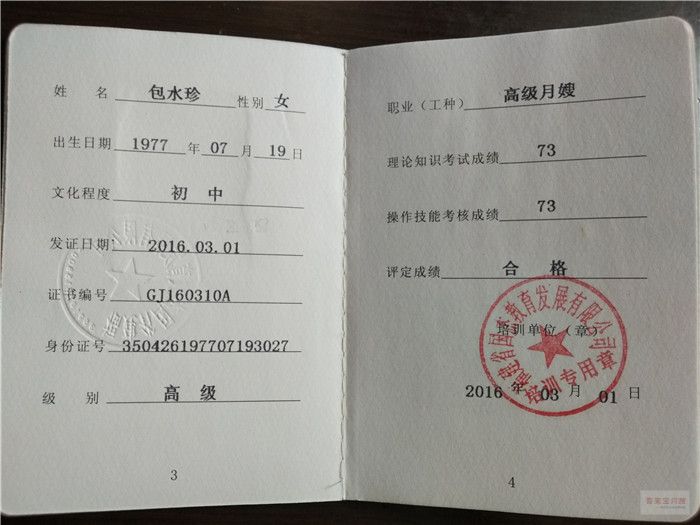 姓 名 包水珍 性别 女
出生日期 1977 年 07 月 19 日
文化程度 初 中
发证日期: 2016.03.01
证书编号 GJ160310A
身份证号 350426197707193027
级 别 高 级
3
职业（工种） 高级月嫂
理论知识考试成绩 73
操作技能考核成绩 73
评定成绩 合 格
培训单位（章）
培训专用章
2016 年 03 月 01 日
4